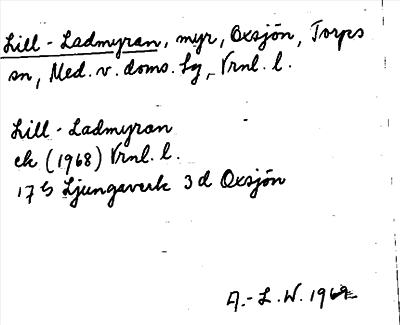 Lill-Ladmyran, myr, Oxsjön, Torps
sn, Med. v. doms. lg, Vrnl. l.
Lill-Ladmyran
ek (1968) Vrnl. l.
17 G Ljungaverk 3 d Oxsjön
A.-L. W. 1969